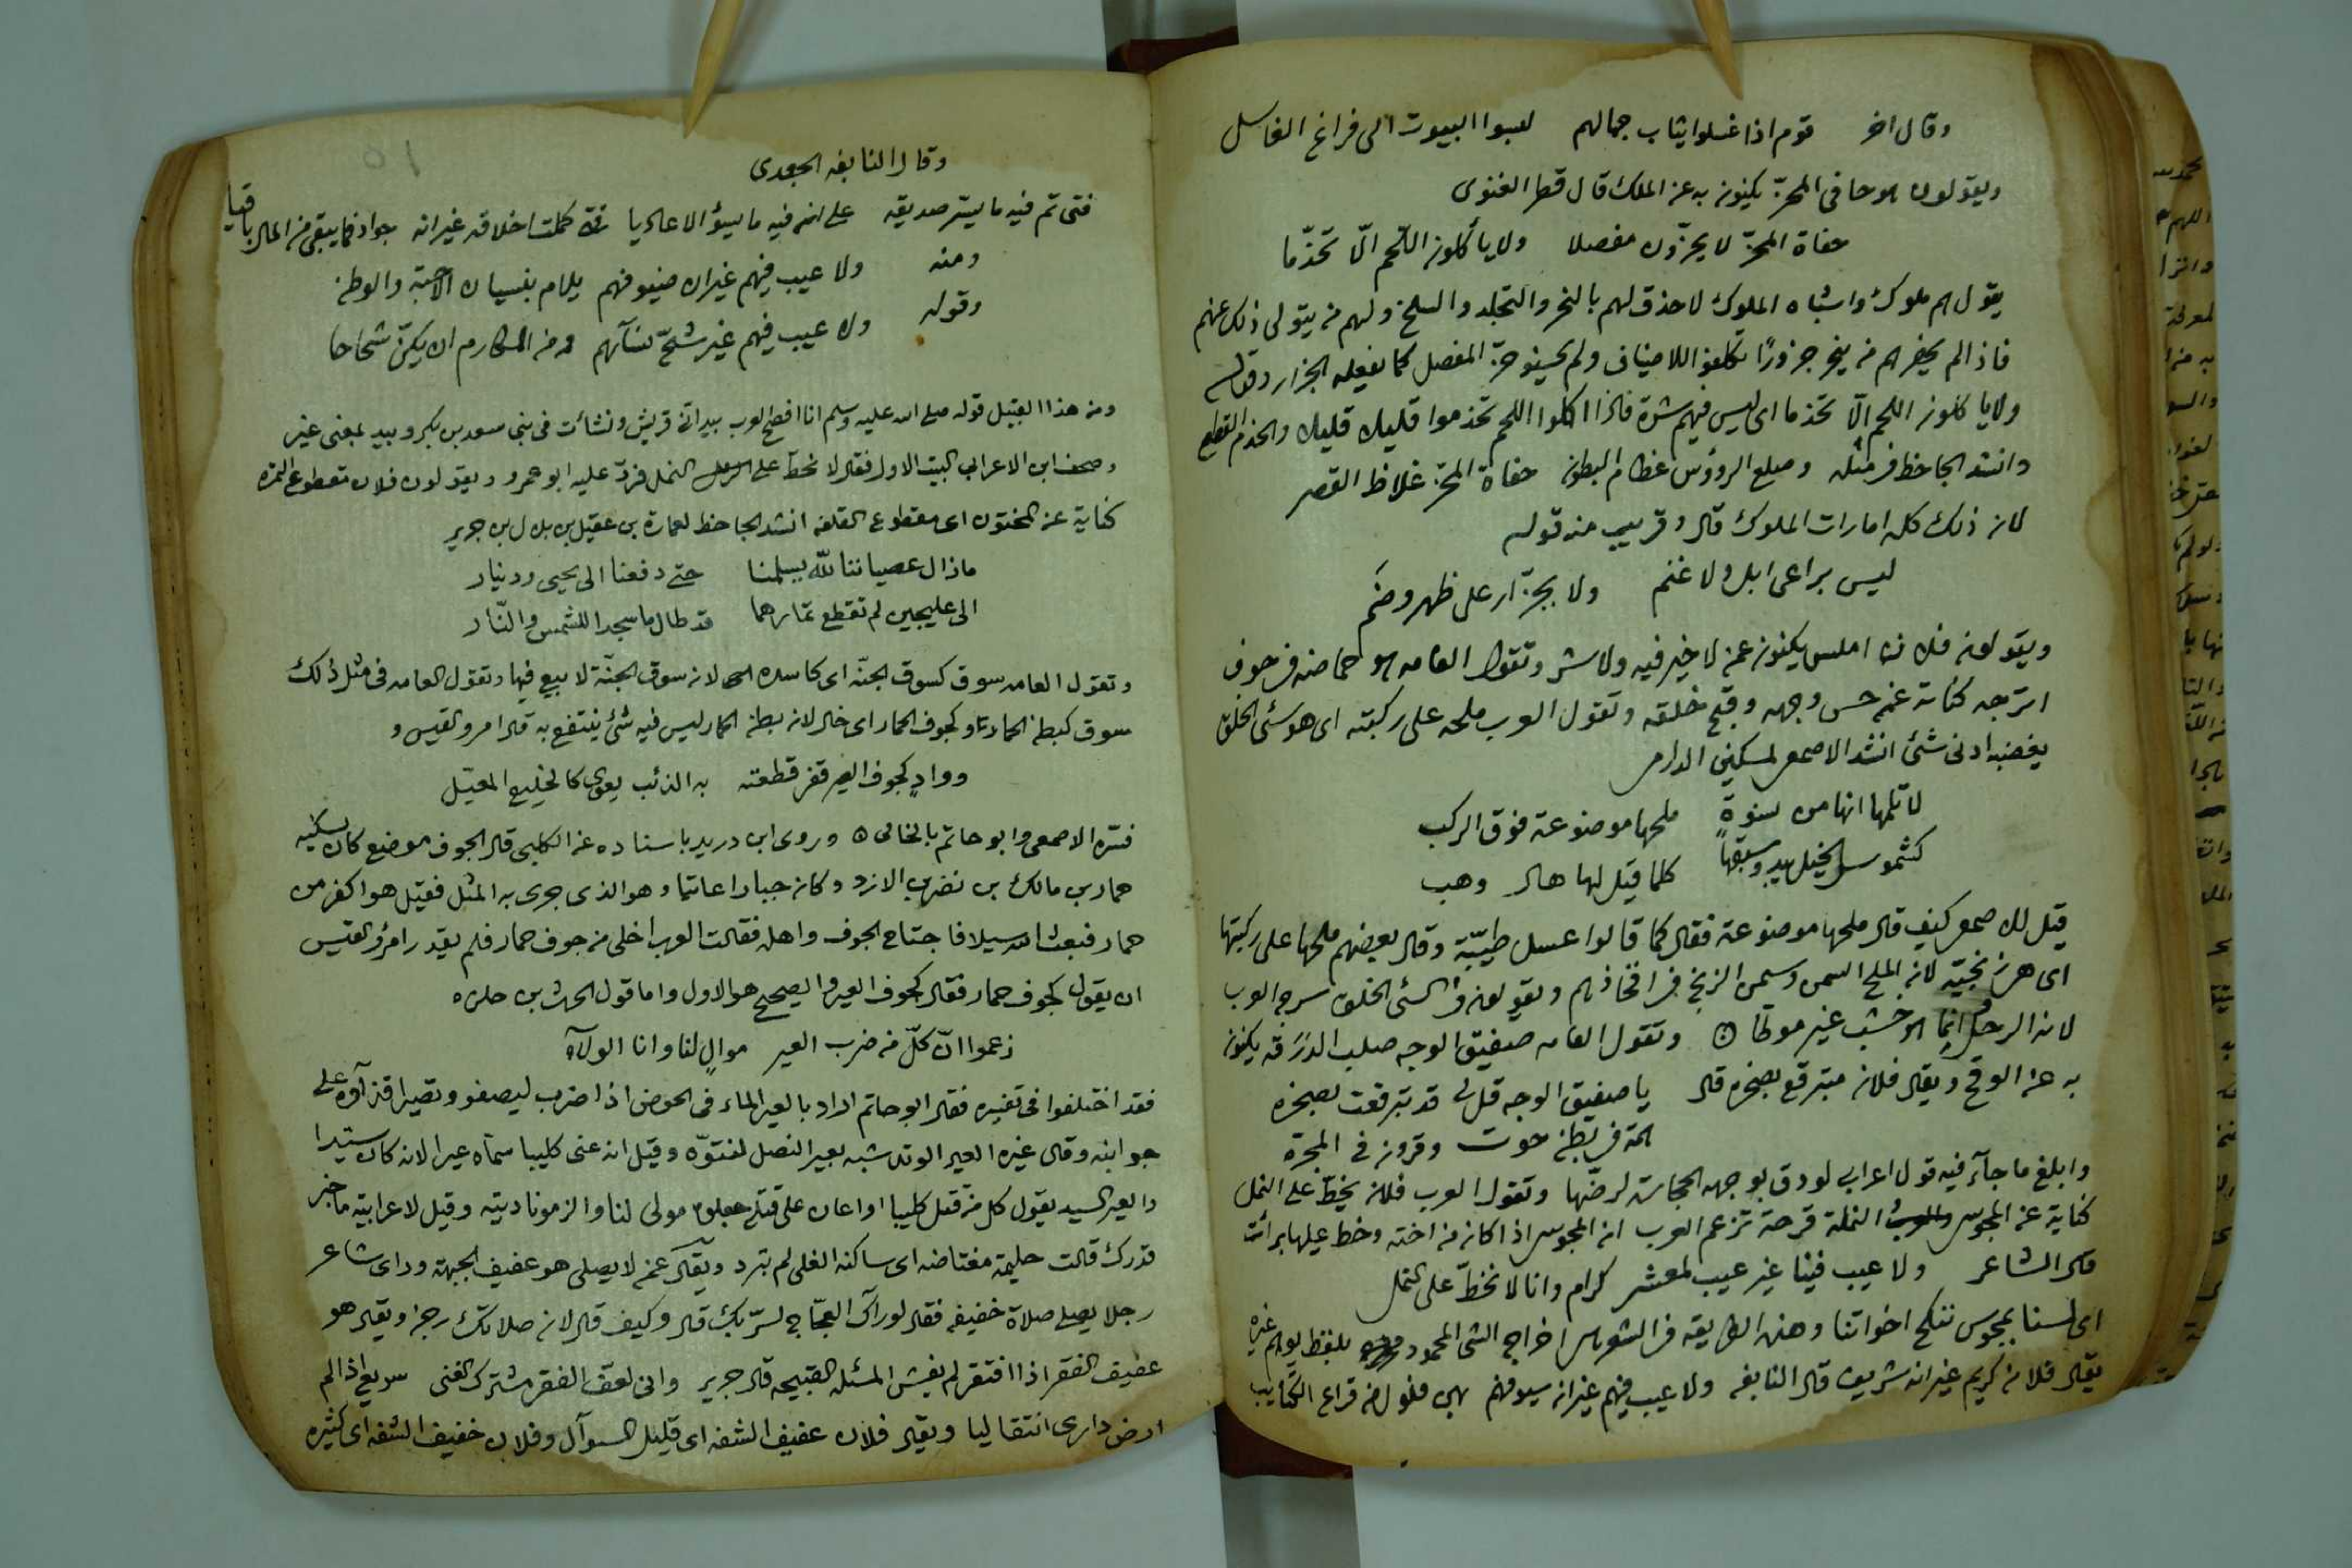 وقال اخر قوم اذا غسلوا ثياب جمالهم لبسوا البيوت الى فراغ الغاسل
ويقولون جافى المحزّ يكنون به عن الملك قال الغنوى
جفاة المحزّ لا يحزّون مفصلا ولا يأكلون اللحم الّا تخذّما
يقول هم ملوك واشباه الملوك لا حذق لهم بالنحر والتجلد والسلخ ولهم من يتولى ذلك عنهم
فاذا لم يحضرهم من ينحر جزورًا تكلفوا للاضياف ولم يحسنوا حزّ المفصل كما يفعله الجزار وقوله
ولا ياكلون اللحم الّا تخذما اى ليس فيهم شره فاذا اكلوا اللحم تخذموا قليلا قليلا والخذم القطع
وانشد الجاحظ فى مثله وصلع الرؤس عظام البطون جفاة المحزّ غلاظ القصر
لان ذلك كله امارات الملوك قال وقريب منه قوله
ليس براعى ابل ولا غنم ولا بجزّار على ظهر وضم
ويقولون فلان املس يكنون عن لا خير فيه ولا شر وتقول العامه حماضه فى جوف
اترجه كناية عن حسن وجهه وقبح خلقه وتقول العرب ملحه على ركبته اى هو سئ الخلق
يغضبه ادنى شئ انشد الاصمعى لمسكين الدارمى
لا تلمها انها من نسوة ملحها موضوعة فوق الركب
كشموس الخيل يبدو شغبها كلما قيل لها هال وهب
قيل للاصمعى كيف قال ملحها موضوعة فقال كما قالوا عسل طيبّة وقال بعضهم ملحها على ركبتها
اى هى زنجيّة لان الملح السمن وسمن الزنج فى افخاذهم ويقولون فى السئ الخلق سرج العرب
لان الرحل انما هو خشب غير موطّا وتقول العامه صفيق الوجه صلب الدرقه يكنون
به عن الوقح ويقال فلان متبرقع بصخره قال يا صفيق الوجه قل لى قد تبرقعت بصخره
لمة فى بطن حوت وقرون فى المجرّة
وابلغ ما جآء فيه قول اعرابى لو دق بوجهه الحجارة لرضّها وتقول العرب فلان يخطّ على النمل
كناية عن المجوس النملة قرحة تزعم العرب ان المجوس اذا كان من اخته وخط عليها برأت
قال الشاعر ولا عيب فينا غير عيب لمعشر كرام وانا لا نخطّ على النمل
اى لسنا بمجوس ننكح اخواتنا وهذه الطريقه فى الشعر اخراج الشئ المحمود بلفظ يوهم غيره
يقال فلان كريم غير انه شريف قال النابغه ولا عيب فيهم غير ان سيوفهم بهن فلول من قراع الكتايب
وقال النابغه الجعدى
فتى تم فيه ما يسرّ صديقه على ان فيه ما يسؤ الاعاديا فتى كملت اخلاقه غير انه جواد فما يبقى من المال باقيا
ومنه ولا عيب فيهم غير ان ضيوفهم يلام بنسيان الاحبّة والوطن
وقوله ولا عيب فيهم غير شحّ نسآئهم ومن المكارم ان يكنّ شحاحا
ومن هذا القبيل قوله صلى الله عليه وسلم انا افصح العرب بيد انّى من قريش ونشات فى بنى سعد بن بكر وبيد بمعنى غير
وصحف ابن الاعرابى البيت الاول فقال لا نحطّ على النمل فردّ عليه ابو عمرو ويقولون فلان مقطوع الثمره
كناية عن المختون اى مقطوع القلفه انشد الجاحظ لعمارة بن عقيل بن بلال بن جرير
مازال عصياننا للّه يسلمنا حتى دفعنا الى يحيى ودينار
الى عليجين لم تقطع ثمارهما قد طال ما سجدا للشمس والنّار
وتقول العامه سوق كسوق الجنّه اى كاسده لان سوق الجنّة لا بيع فيها وتقول العامه فى مثل ذلك
سوق كبطن الحمار او كجوف الحمار اى خال لان بطن الحمار ليس فيه شئ ينتفع به قال امرو القيس و
ووادٍ كجوف العير قفر قطعته به الذئب يعوى كالخليع المعيّل
فسّره الاصمعى وابو حاتم بالخالى وروى ابن دريد باسناده عن الكلبى قال الجوف موضع كان يسكنه
حمار بن مالك بن نضر بن الازد وكان جبارا عاتيا وهو الذى جرى به المثل فقيل هو اكفر من
حمار فبعث الله سيلا فاجتاح الجوف واهله فقالت العرب اخلى من جوف حمار فلم يقدر امرؤ القيس
ان يقول كجوف حمار فقال كجوف العير والصحيح هو الاول واما قول الحرث بن حلزه
زعموا انّ كلّ من ضرب العير موالٍ لنا وانا الولآء
فقد اختلفوا فى تفسيره فقال ابو حاتم اراد بالعير الماء فى الحوض اذا ضرب ليصفو وتصير اقذآؤه على
جوانبه وقال غيره العير الوتد شبه بعير النصل لنتوّه وقيل انه عنى كليبا سمآه عيرا لانه كان سيدا
والعير السيد يقول كل من قتل كليبا او اعان على قتله جعلوه مولى لنا والزمونا ديته وقيل لاعرابية ما خبر
قدرك قالت حليمة مغتاضه اى ساكنة الغلى لم تبرد ويقال عن لا يصلى هو عفيف الجبهة وراى شاعر
رجلا يصلى صلاة خفيفه فقال لو رآك العجّاج لسرّ بك قال وكيف قال لان صلاتك رجز ويقال هو
عفيف الفقر اذا افتقر لم يغش المسئله القبيحه قال جرير وانى لعف الفقر مشترك الغنى سريع اذا لم
ارض دارى انتقاليا ويقال فلان عفيف الشفه اى قليل السوآل وفلان خفيف الشفه اى كثيره